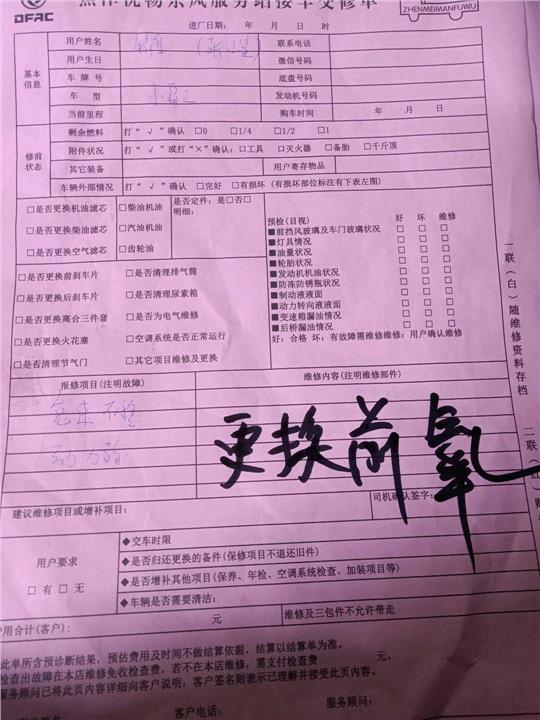 DFAC
优物东风服务站接车交修单
ZHENMEIMANFUWU
进厂日期： 年 月 日 时
基本信息
用户姓名 联系电话
用户生日 微信号码
车牌号 底盘号码
车 型 发动机号码
当前里程 购车时间 年 月 日
修前状态
剩余燃料 打“√”确认 □0 □1/4 □1/2 □1
附件状况 打“√”或打“×”确认：□工具 □灭火器 □备胎 □千斤顶
其它装备 用户寄存物品
车辆外部情况 打“√”确认 □完好 □有损坏（有损坏部位标注有下表左图）
□是否更换机油滤芯 □柴油机油 是否定件：是□否□
□是否更换柴油滤芯 □汽油机油 明细：
□是否更换空气滤芯 □齿轮油
□是否更换前刹车片 □是否清理排气筒
□是否更换后刹车片 □是否清理尿素箱
□是否更换离合三件套 □是否为电气维修
□是否更换火花塞 □空调系统是否正常运行
□是否清理节气门 □其它项目维修及更换
预检(目视) 好 坏 维修
■前挡风玻璃及车门玻璃状况 □ □ □
■灯具情况 □ □ □
■油量状况 □ □ □
■轮胎状况 □ □ □
■发动机机油状况 □ □ □
■防冻防锈瓶状况 □ □ □
■制动液液面 □ □ □
■动力转向液液面 □ □ □
■变速箱漏油情况 □ □ □
■后桥漏油情况 □ □ □
好：合格 坏：有故障需维修维修：用户确认维修
报修项目(注明故障) 维修内容(注明维修部件)
更换前氧
司机确认签字：
建议维修项目或增补项目：
用户要求
□有 □无
◆交车时限
◆是否归还更换的备件(保修项目不退还旧件)
◆是否增补其他项目(保养、年检、空调系统检查、加装项目等)
◆车辆是否需要清洁：
费用合计(客户)： 元 维修及三包件不允许带走
此单所含预诊断结果，预估费用及时间不做结算依据，结算以结算单为准。
检查出故障在本店维修免收检查费。若不在本店维修，需支付检查费 元。
服务顾问已将此页内容详细向客户说明，客户签名则表示已理解并接受此页内容。
客户电话： 服务顾问：
一联（白）随维修资料存档
二联